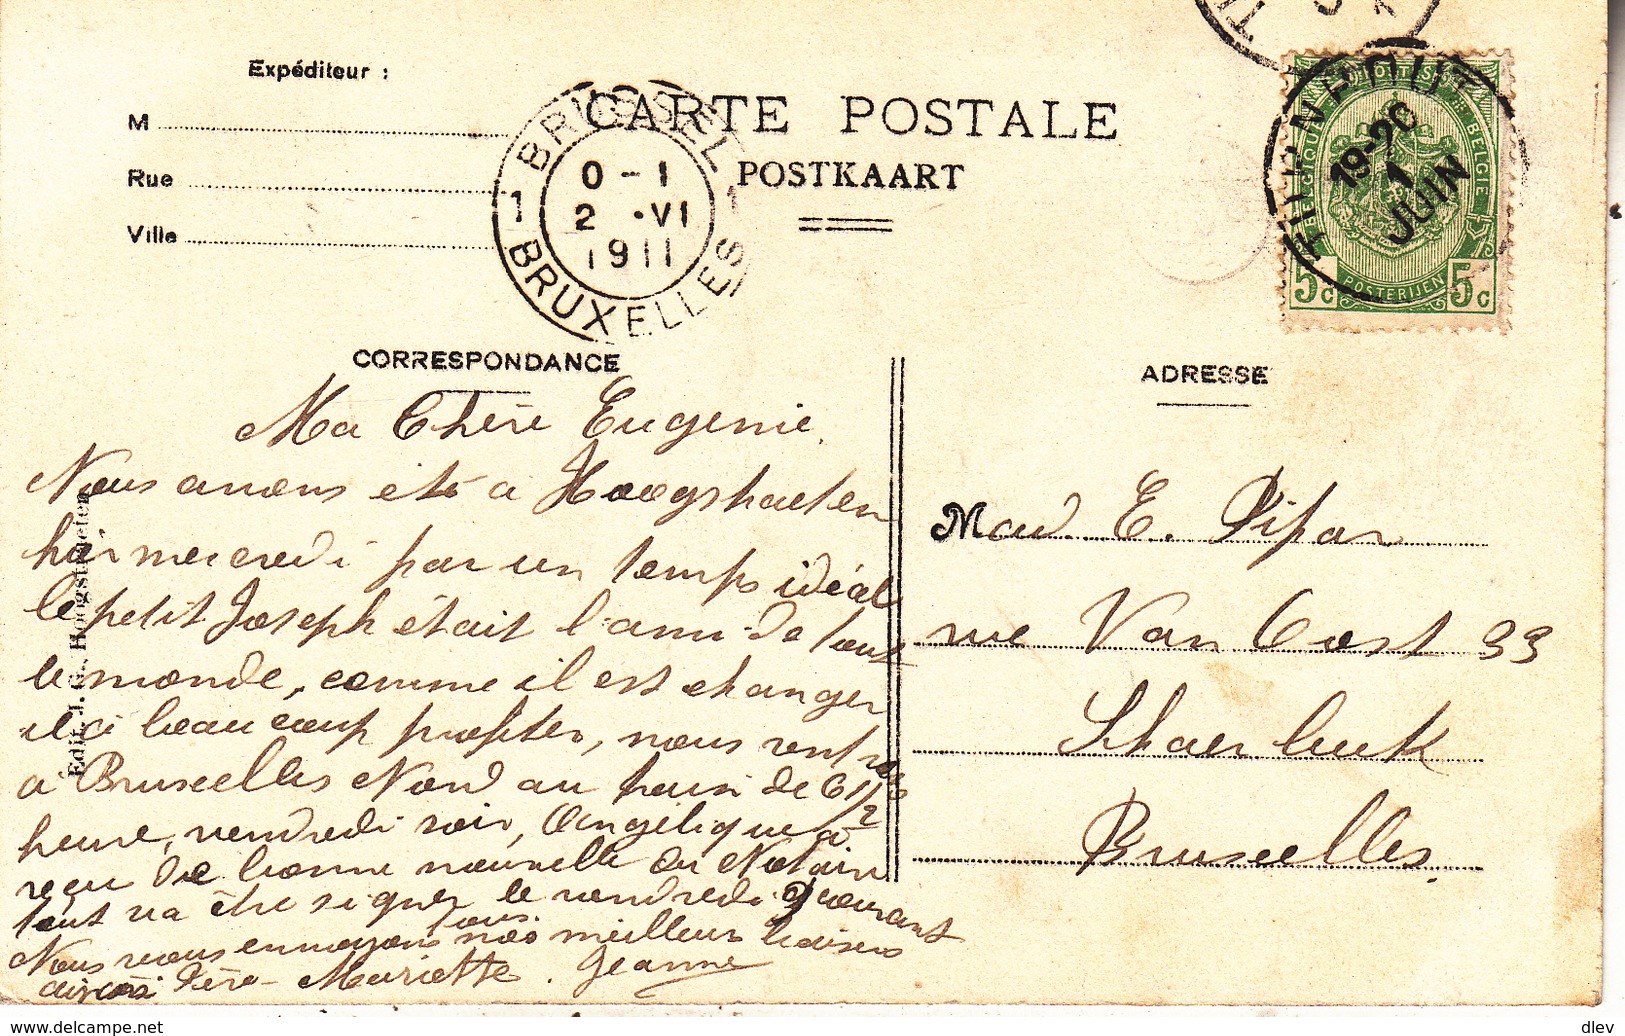 Expéditeur :
CARTE POSTALE
POSTKAART
M
Rue
Ville
BRUSSEL
1 1
0-1
2 .VI
1911
BRUXELLES
TURNHOUT
19-20
1
JUIN
BELGIQUE BELGIE
POSTERIJEN
5c 5c
CORRESPONDANCE
ADRESSE
Ma Chère Eugenie.
Nous avons été à Hoogstraeten
hier mercredi par un temps idéal
le petit Joseph était l'ami de tout
le monde, comme il est changer
il a beaucoup profiter, nous rentrons
à Bruxelles Nord au train de 6 1/2
heure, vendredi soir, Angélique a
reçu de bonne nouvelle du Notaire
tout va être signer le vendredi 9 courant
Nous vous envoyons tous nos meilleur baisers
Père - Mariette. Jeanne
Mad. E. Pipar
rue Van Oost 33
Schaerbeek
Bruxelles.
Edit. J. G., Hoogstraeten
www.delcampe.net
dlev